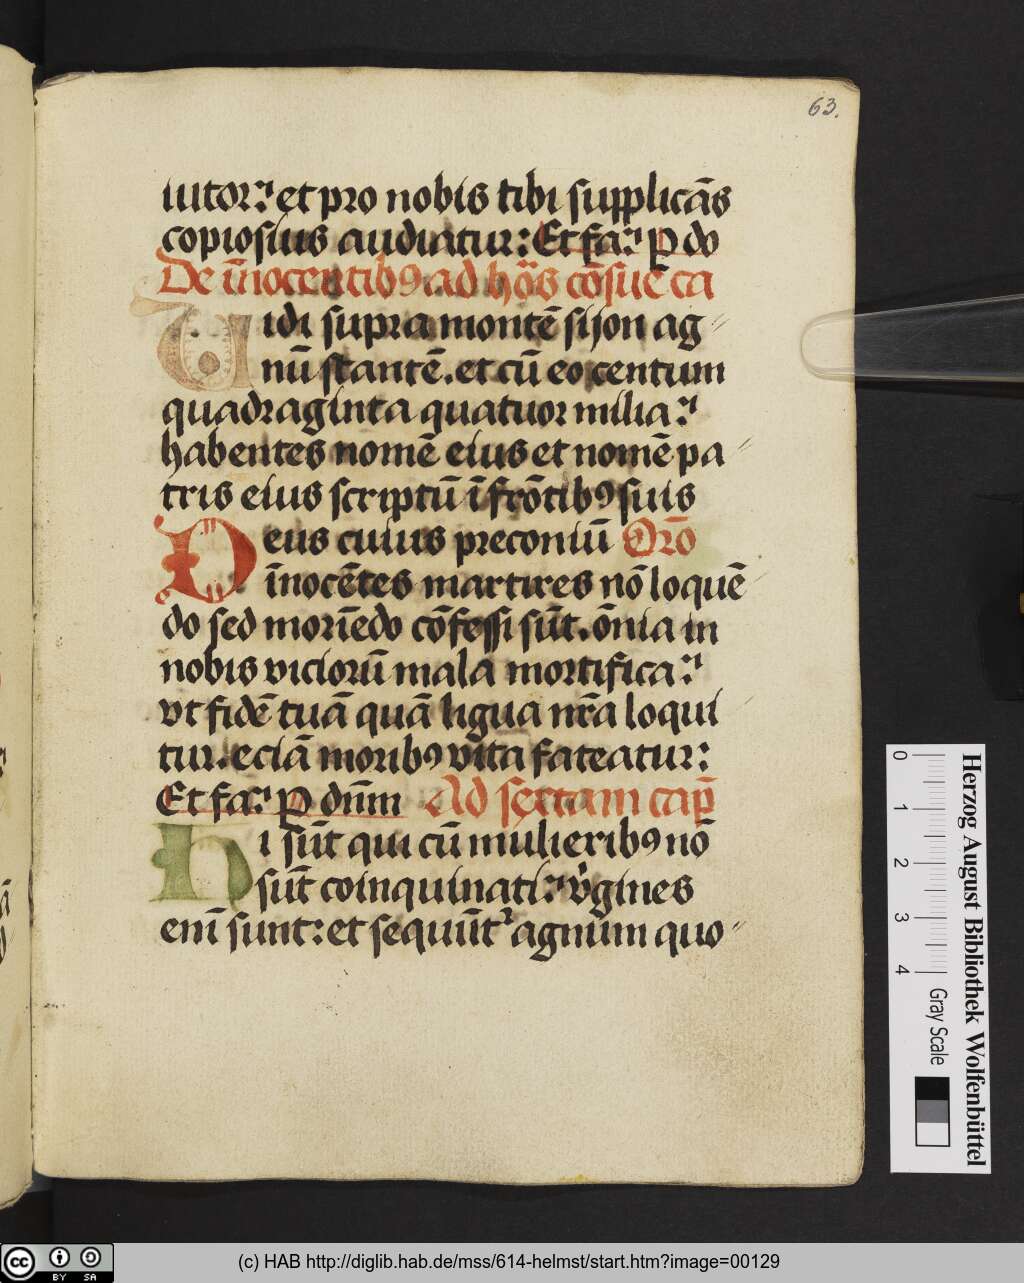 63.
iutor⁊ et pro nobis tibi supplicãs
copiosius audiatur: Et fa⁊ p do
De ĩnocentibꝰ ad hõs cõsue ca
Uidi supra montẽ sijon ag
nũ stantẽ. et cũ eo centum
quadraginta quatuor milia⁊
habentes nomẽ eius et nomẽ pa
tris eius scriptũ ĩ frõtibꝰ suis
Deus cuius preconiũ Orõ
ĩnocẽtes martires nõ loquẽ
do sed moriẽdo cõfessi sũt. õnia in
nobis viciorũ mala mortifica⁊
vt fidẽ tuã quã ligua nr̃a loqui
tur. eciã moribꝰ vita fateatur:
Et fa⁊ p dñm Ad sextam cap̃
Hi sũt qui cũ mulieribꝰ nõ
sũt coinquinati⁊ v̾gines
enĩ sunt: et sequũt᷑ agnum quo
0 1 2 3 4
Gray Scale
Herzog August Bibliothek Wolfenbüttel
cc BY SA
(c) HAB http://diglib.hab.de/mss/614-helmst/start.htm?image=00129